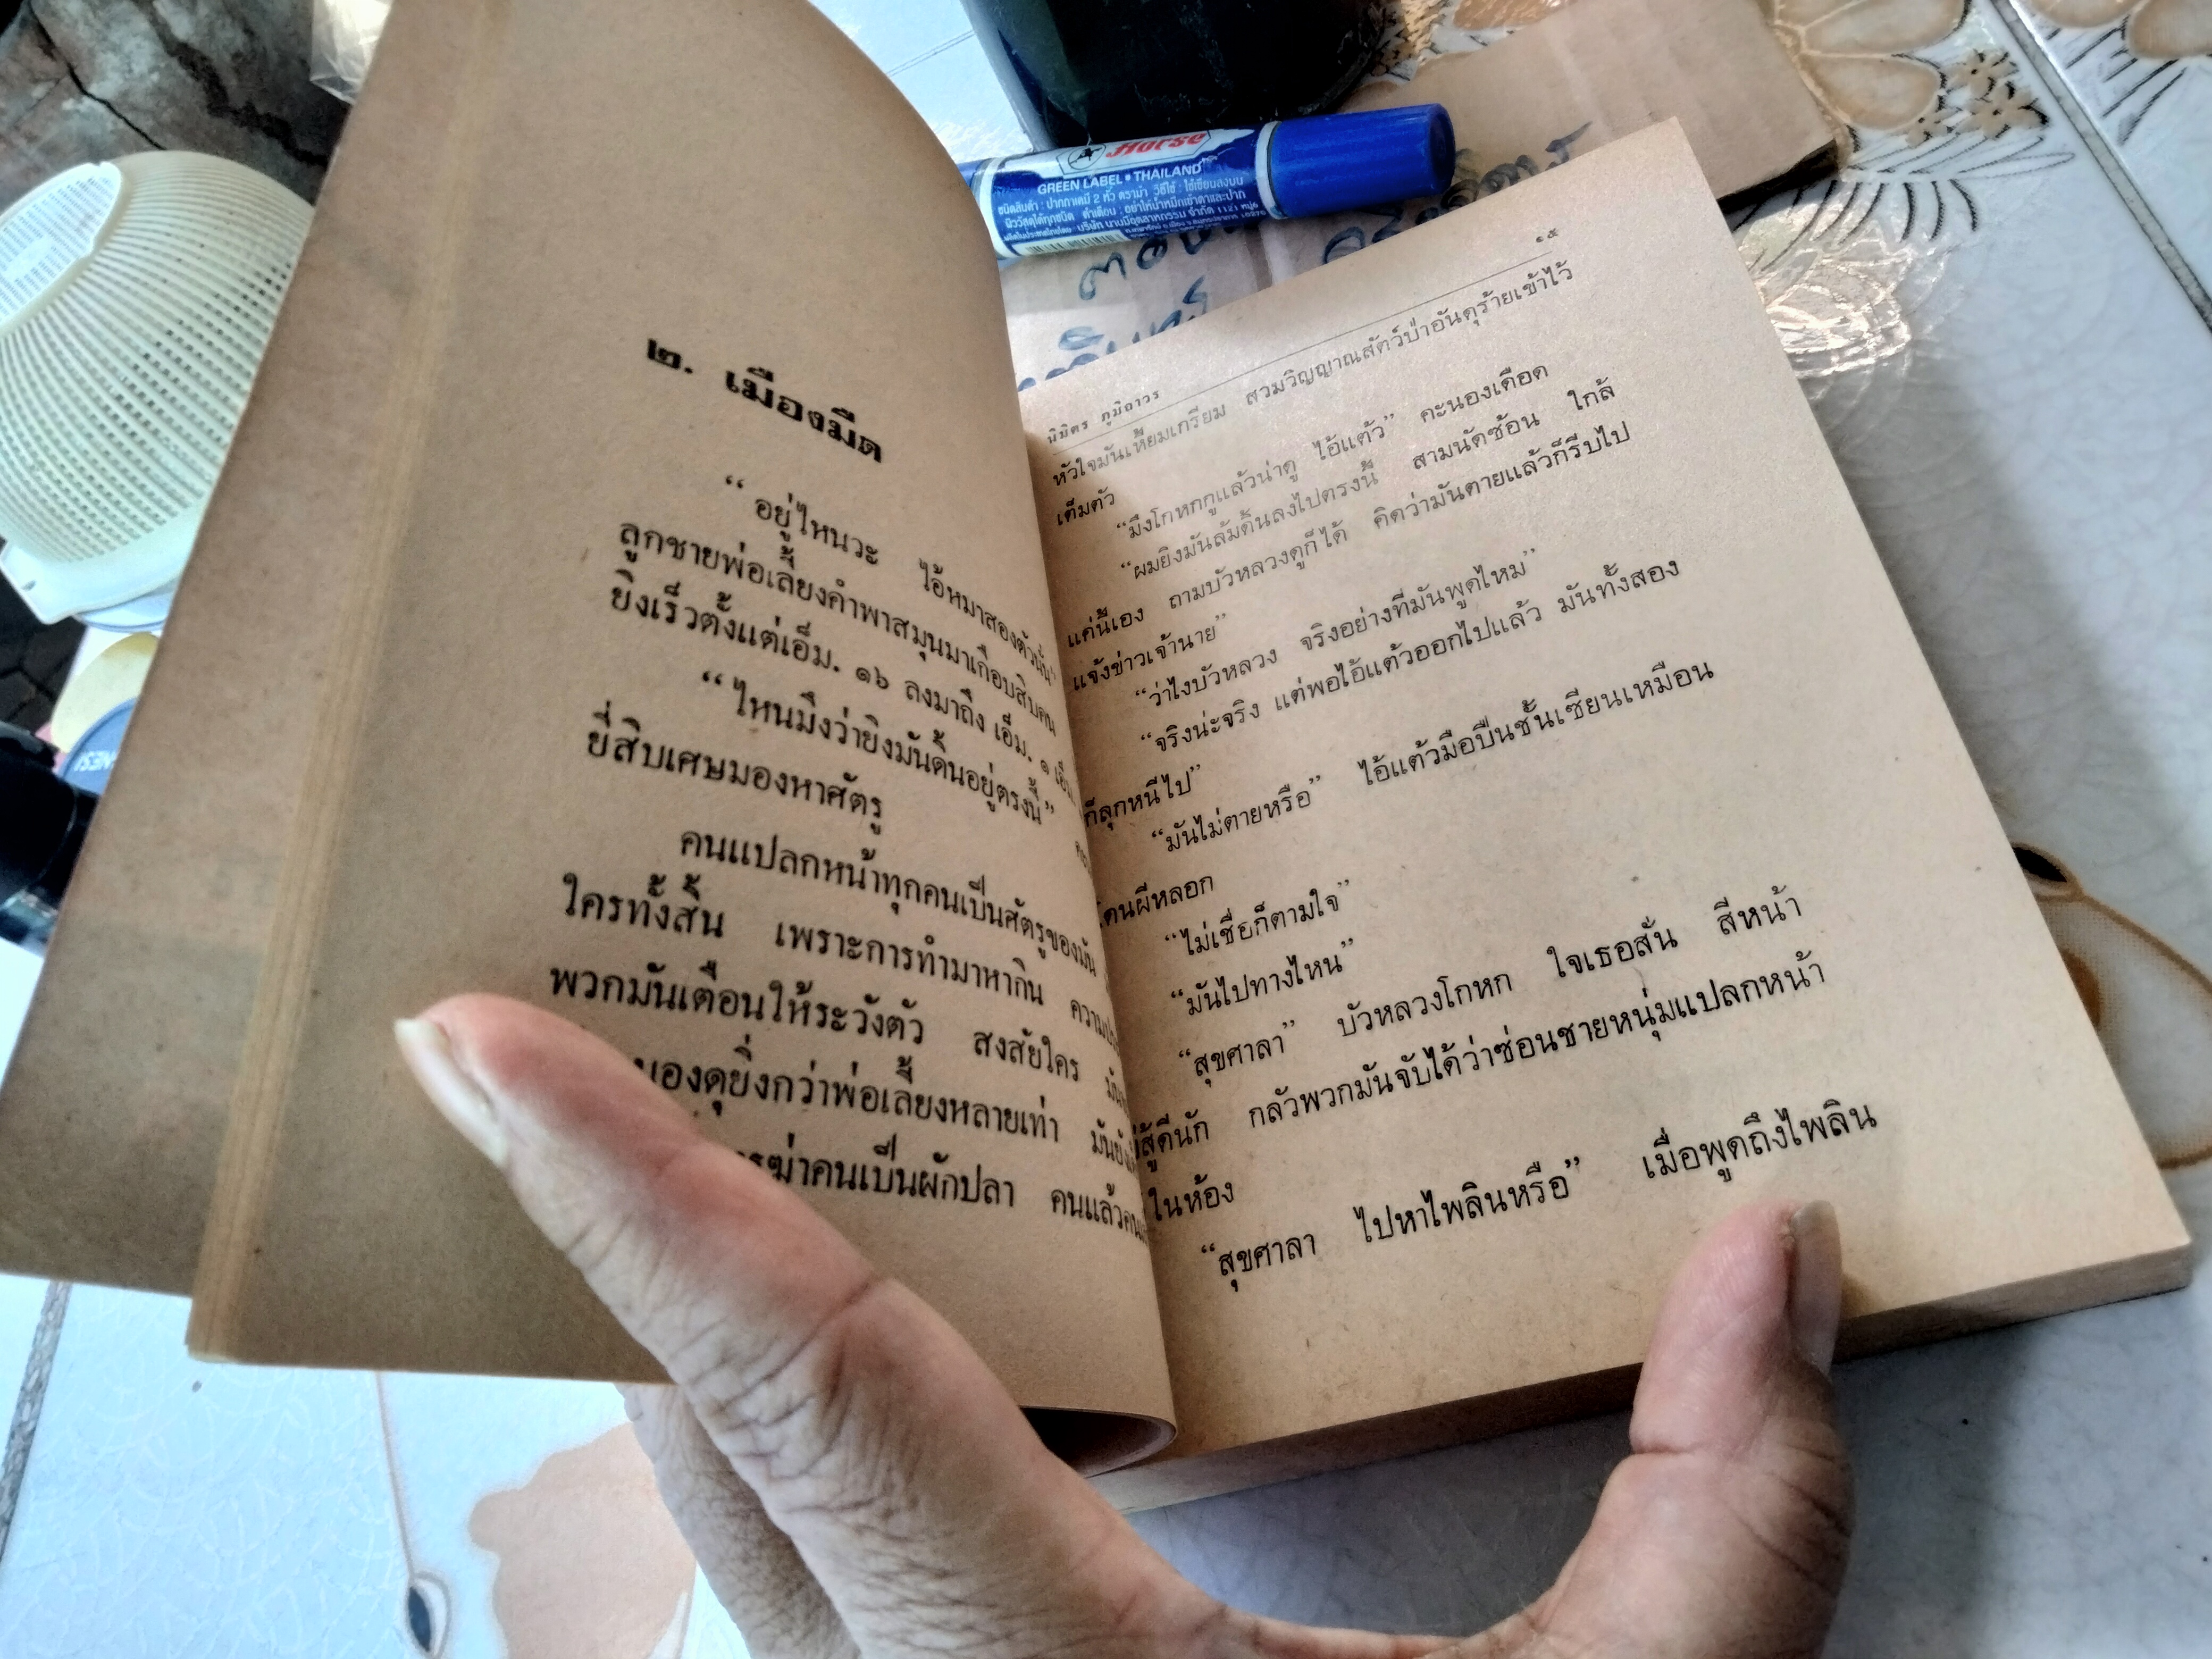 ๒. เมืองมืด
“ อยู่ไหนวะ ไอ้หมาสองตัวนั้น”
ลูกชายพ่อเลี้ยงคำพาสมุนมาเกือบสิบคน
ยิงเร็วตั้งแต่เอ็ม. ๑๖ ลงมาถึง เอ็ม. ๑
“ ไหนมึงว่ายิงมันดิ้นอยู่ตรงนี้”
ยี่สิบเศษมองหาศัตรู
คนแปลกหน้าทุกคนเป็นศัตรูของมัน
ใครทั้งสิ้น เพราะการทำมาหากิน
พวกมันเตือนให้ระวังตัว สงสัยใคร
ดุยิ่งกว่าพ่อเลี้ยงหลายเท่า
ฆ่าคนเป็นผักปลา คนแล้ว
นิมิตร ภูมิถาวร
๑๕
หัวใจมันเหี้ยมเกรียม สวมวิญญาณสัตว์ป่าอันดุร้ายเข้าไว้
เต็มตัว
“มึงโกหกกูแล้วน่าดู ไอ้แต้ว” คะนองเดือด
“ผมยิงมันล้มดิ้นลงไปตรงนี้ สามนัดซ้อน ใกล้
แค่นี้เอง ถามบัวหลวงดูก็ได้ คิดว่ามันตายแล้วก็รีบไป
แจ้งข่าวเจ้านาย”
“ว่าไงบัวหลวง จริงอย่างที่มันพูดไหม”
“จริงน่ะจริง แต่พอไอ้แต้วออกไปแล้ว มันทั้งสอง
ก็ลุกหนีไป”
“มันไม่ตายหรือ” ไอ้แต้วมือปืนชั้นเซียนเหมือน
โดนผีหลอก
“ไม่เชื่อก็ตามใจ”
“มันไปทางไหน”
“สุขศาลา” บัวหลวงโกหก ใจเธอสั่น สีหน้า
ไม่สู้ดีนัก กลัวพวกมันจับได้ว่าซ่อนชายหนุ่มแปลกหน้า
ในห้อง
“สุขศาลา ไปหาไพลินหรือ” เมื่อพูดถึงไพลิน
Horse
GREEN LABEL • THAILAND
ชนิดสินค้า : ปากกาเคมี 2 หัว ตราม้า วิธีใช้ : ใช้เขียนลงบน
ผิววัสดุได้ทุกชนิด คำเตือน : อย่าให้น้ำหมึกเข้าตาและปาก